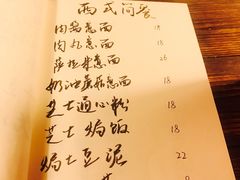 西式简餐
肉酱意面 18
肉丸意面 18
萨拉米意面 26
奶油蘑菇意面
芝士通心粉 18
芝士焗饭 18
焗土豆泥 22